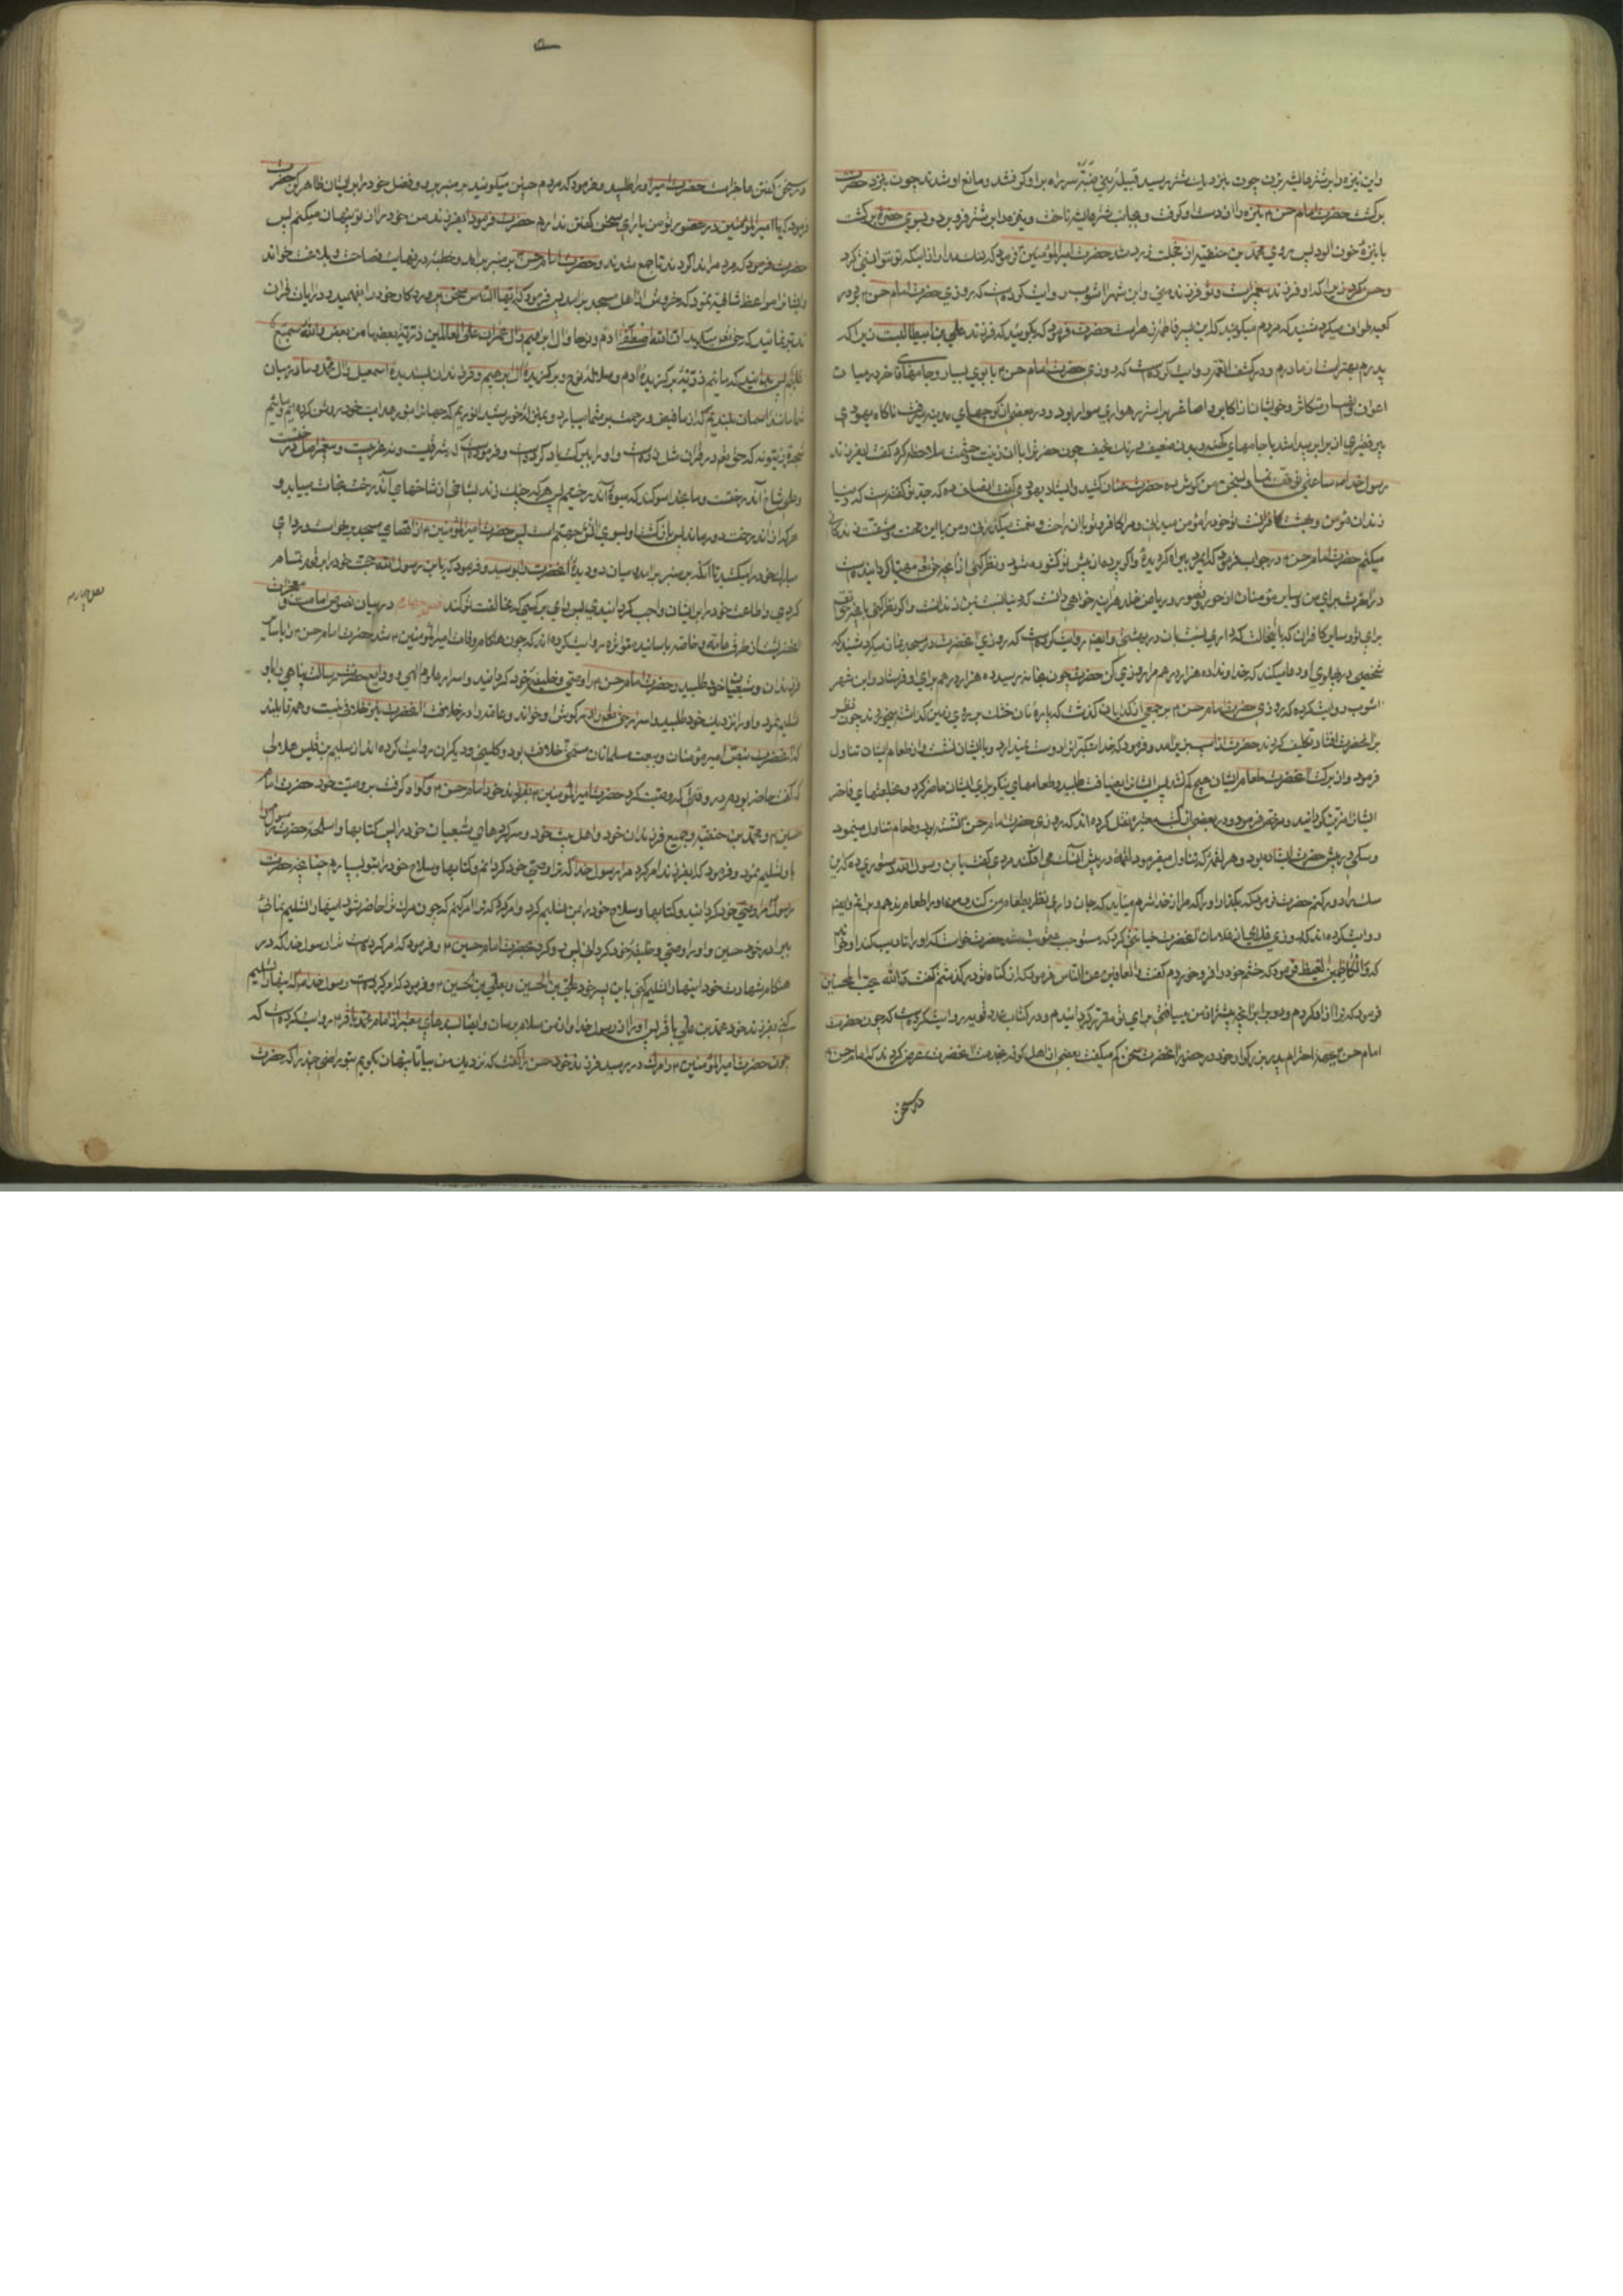 و این نیزه را بر شتر عایشه بزن چون بنزدیک شتر رسید قبیله بنی ضبه سر راه بر او گرفتند و مانع او شدند چون بنزد حضرت
برگشت حضرت امام حسن نیزه را از دست او گرفت و بجانب شتر عایشه تاخت و نیزه را بر شتر فرو برد و بسوی حضرت برگشت
با نیزه خون آلود پس روی محمد بن حنفیه از خجلت زرد شد حضرت امیرالمؤمنین فرمود که ننگ مدار از اینکه تو نتوانستی کرد
و حسن کرد زیرا که او فرزند پیغمبر است و تو فرزند منی و ابن شهرآشوب روایت کرده است که روزی حضرت امام حسن در
کعبه طواف میکرد شنید که مردم میگویند که این پسر فاطمه زهراست حضرت فرمود که بگویید که فرزند علی بن ابیطالبست زیرا که
پدرم بهتر است از مادرم و در کشف الغمه روایت کرده است که روزی حضرت امام حسن با بوی بسیار و جامهای فاخر در میان
اعوان و انصار و خویشان از اکابر و اصاغر بر استر رهواری سوار بود و در بعضی از کوچهای مدینه میرفت ناگاه یهودی
پیر فقیری از برابر پیدا شد با جامهای کهنه و بدن ضعیف و رنگ نحیف چون حضرت را با آن زینت و حشمت ملاحظه کرد گفت ای فرزند
رسول خدا ساعتی توقف نما و سخن من گوش ده حضرت عنان کشید و ایستاد یهودی گفت انصاف ده که جد تو گفته است که دنیا
زندان مؤمن و بهشت کافر است تو خود را مؤمن میدانی و مرا کافر و تو با آن راحت و نعمت میگذرانی و من با این محنت و مشقت زندگانی
میکنم حضرت امام حسن در جواب فرمود که ای مرد پیر اگر دیده واکنی و پرده از پیش تو گشوده شود و نظر کنی آنچه حق تعالی مهیا گردانیده است
در آخرت برای من و سایر مؤمنان از حور و قصور و ریاض خلد هرآینه خواهی دانست که دنیا نسبت بمن زندانست و اگر نظر کنی آنچه حق تعالی
برای تو و سایر کافران
شخصی در پهلوی او دعا میکند که خداوندا ده هزار درهم مرا روزی کن حضرت چون بخانه رسید ده هزار درهم برای او فرستاد و ابن شهر
آشوب روایت کرده که روزی حضرت امام حسن بر جمعی از گدایان گذشت که پاره نان خشک بر روی زمین گذاشته میخوردند چون نظر
بر آنحضرت افتاد تکلیف کردند حضرت از اسب بزیر آمد و فرمود که خدا متکبران را دوست نمیدارد و با ایشان نشست و از طعام ایشان تناول
فرمود و از برکت آنحضرت طعام ایشان هیچ کم نشد پس ایشان را بضیافت طلبید و طعامهای نیکو برای ایشان حاضر کرد و بخلعتهای فاخر
ایشان را مزین گردانید و مرخص فرمود و در بعضی از کتب معتبره نقل کرده اند که روزی حضرت امام حسن نشسته بود و طعام تناول مینمود
و سگی در پیش حضرت ایستاده بود و هر لقمه که تناول میفرمود لقمه در پیش آن سگ می افکند مردی گفت یابن رسول الله دستوری ده که این
سگ را دور کنم حضرت فرمود که بگذار او را که مرا از خدا شرم میآید که جان داری نظر بطعام من کند و من او را طعام ندهم و برانم و ایضا
روایت کرده اند که روزی غلامی از غلامان آنحضرت خیانتی کرد که مستوجب عقوبت شد حضرت خواست که او را تادیب کند او خواند
که والکاظمین الغیظ فرمود که خشم خود را فرو خوردم گفت والعافین عن الناس فرمود که از گناه تو درگذشتم گفت والله یحب المحسنین
فرمود که ترا آزاد کردم و دو برابر آنچه پیشتر از من میافتی برای تو مقرر گردانیدم و در کتاب عدد قویه روایت کرده است که چون حضرت
امام حسن بجهة احترام پدر بزرگوار خود در حضور آنحضرت سخن کم میگفت بعضی از اهل کوفه بخدمت آنحضرت عرض کردند که امام حسن
در سخن
در سخن گفتن عاجز است حضرت امیر او را طلبید و فرمود که مردم چنین میگویند بر منبر برو و فضل خود را بر ایشان ظاهر کن حضرت
فرمود که یا امیرالمؤمنین در حضور تو من یارای سخن گفتن ندارم حضرت فرمود ای فرزند من خود را از تو پنهان میکنم پس
حضرت فرمود که مردم را ندا کردند تا جمع شدند و حضرت امام حسن بر منبر برآمد و خطبه در نهایت فصاحت و بلاغت خواند
و ایشان را مواعظ شافیه نمود که خروش از اهل مسجد برآمد پس فرمود که ایها الناس سخن پروردگار خود را بفهمید و در آیات قرآن
تدبر نمائید که حق تعالی میگوید ان الله اصطفی آدم و نوحا و آل ابراهیم و آل عمران علی العالمین ذریة بعضها من بعض والله سمیع
علیم پس بدانید که مائیم ذریه برگزیده آدم و سلاله نوح و برگزیده آل ابراهیم و فرزندان پسندیده اسمعیل و آل محمد و ما در میان
شما مانند آسمان بلندیم
شجره زیتونه که حق تعالی در قرآن مثل زده است و او را ببرکت یاد کرده است و فرموده است که نه شرقیست و نه غربیست و پیغمبر اصل درختست
و علی شاخ آندرختست و ما بخدا سوگند که میوه آندرختیم پس هر که چنگ زند بشاخی از شاخهای آندرخت نجات مییابد و
هر که از آندرخت دور ماند پس بازگشت او بسوی آتش جهنم است پس حضرت امیرالمؤمنین از اقصای مسجد برخاست و ردای
مبارک خود را میکشید تا آنکه بر منبر برآمد میان دو دیده آنحضرت را بوسید و فرمود که یابن رسول الله حجت خود را بر قوم تمام
کردی و اطاعت خود را بر ایشان واجب گردانیدی پس وای بر کسی که مخالفت تو کند فصل چهارم در بیان نصوص امامت و معجزات
آنحضرتست از طرق عامه و خاصه باسانید متواتره روایت کرده اند که چون هنگام وفات امیرالمؤمنین شد حضرت امام حسن و سایر
فرزندان و شیعیان خود طلبید و حضرت امام حسن را وصی و خلیفه خود گردانید و اسرار علوم الهی و ودایع حضرت رسالت پناهی را باو
تسلیم نمود و او را نزدیک خود طلبید و اسرار خفی بگوش او خواند و عامه را در خلافت آنحضرت نیز خلافی نیست و همه قایلند
که آنحضرت بنص امیرمؤمنان و بیعت مسلمانان مستحق خلافت بود و کلینی و دیگران روایت کرده اند از سلیم بن قیس هلالی
که گفت حاضر بودم در وقتی که وصیت کرد حضرت امیرالمؤمنین بفرزند خود امام حسن و گواه گرفت بر وصیت خود حضرت امام
حسین و محمد بن حنفیه و جمیع فرزندان خود و اهل بیت خود و سرکردهای شیعیان خود را پس کتابها و اسلحه حضرت رسول را
باو تسلیم نمود و فرمود که ای فرزند امر کرد مرا رسول خدا که ترا وصی خود گردانم و کتابها و سلاح خود را بتو بسپارم چنانچه حضرت
رسول مرا وصی خود گردانید و کتابها و سلاح خود را بمن تسلیم کرد و امر کرد که ترا امر کنم که چون مرگ ترا حاضر شود اینها را تسلیم نمائی
ببرادر خود حسین و او را وصی و خلیفه خود گردانی پس رو کرد بحضرت امام حسین و فرمود که امر کرده است ترا رسول خدا که در
هنگام شهادت خود اینها را تسلیم کنی باین پسر خود علی بن الحسین و بعلی بن الحسین فرمود که امر کرده است رسول خدا که اینها را تسلیم
کنی بفرزند خود محمد بن علی باقر پس او را از رسول خدا و از من سلام برسان و ایضا بسندهای معتبر از امام محمد باقر روایت کرده است که
چون حضرت امیرالمؤمنین را مرگ در رسید فرزند خود حسن را گفت که نزدیک من بیا تا پنهان بگویم بتو رازی چند را که حضرت
فصل چهارم